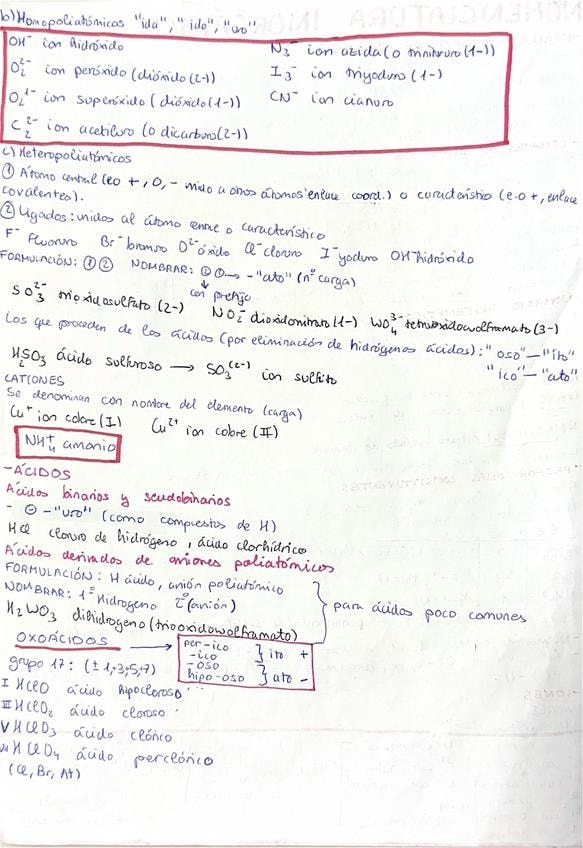 b) Homopoliatómicos "ida", "ido", "uro"
OH⁻ ion hidróxido
N₃⁻ ion azida (o trinitruro (1-))
O₂²⁻ ion peróxido (dióxido (2-))
I₃⁻ ion triyoduro (1-)
O₂¹⁻ ion superóxido (dióxido (1-))
CN⁻ ion cianuro
C₂²⁻ ion acetiluro (o dicarburo (2-))
c) Heteropoliatómicos
① Átomo central (eo +, 0, - unido a otros átomos enlace coord.) o característico (e.o +, enlace
covalentes).
② Ligados: unidos al átomo central o característico
F⁻ fluoruro Br⁻ bromuro O²⁻ óxido Cl⁻ cloruro I⁻ yoduro OH⁻ hidróxido
FORMULACIÓN: ① ② NOMBRAR: ② ① → -"ato" (nº carga)
con prefijo
SO₃²⁻ trioxidosulfato (2-) NO₂⁻ dioxidonitrato (1-) WO₄³⁻ tetraoxidowolframato (3-)
Los que proceden de los ácidos (por eliminación de hidrógenos ácidos): "oso" — "ito"
"ico" — "ato"
H₂SO₃ ácido sulfuroso → SO₃⁽²⁻⁾ ion sulfito
CATIONES
Se denominan con nombre del elemento (carga)
Cu⁺ ion cobre (I) Cu²⁺ ion cobre (II)
NH₄⁺ amonio
- ÁCIDOS
Ácidos binarios y seudobinarios
- ⊖ -"uro" (como compuestos de H)
HCl cloruro de hidrógeno, ácido clorhídrico
Ácidos derivados de aniones poliatómicos
FORMULACIÓN: H ácido, anión poliatómico
NOMBRAR: 1º Hidrogeno 2º (anión)
para ácidos poco comunes
H₂WO₃ dihidrogeno (trioxidowolframato)
OXOÁCIDOS →
per-ico
-ico } ito +
-oso
hipo-oso } ato -
grupo 17: (±1,+3,+5,+7)
I HClO ácido hipocloroso
III HClO₂ ácido cloroso
V HClO₃ ácido clórico
VII HClO₄ ácido perclórico
(Cl, Br, At)